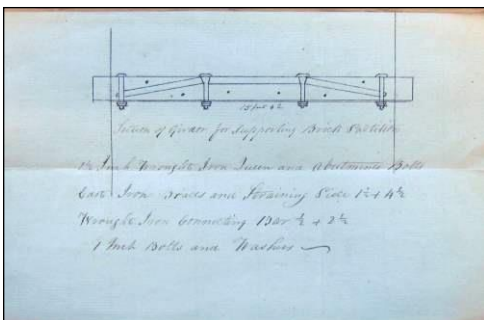 Section of Girder for Supporting Brick Partition
Inch Wrought Iron Queen and Abutment Bolts
Cast Iron Braces and Straining Piece 1½ + 4½
Wrought Iron Connecting Bar ½ + 2½
1 Inch Bolts and Washers